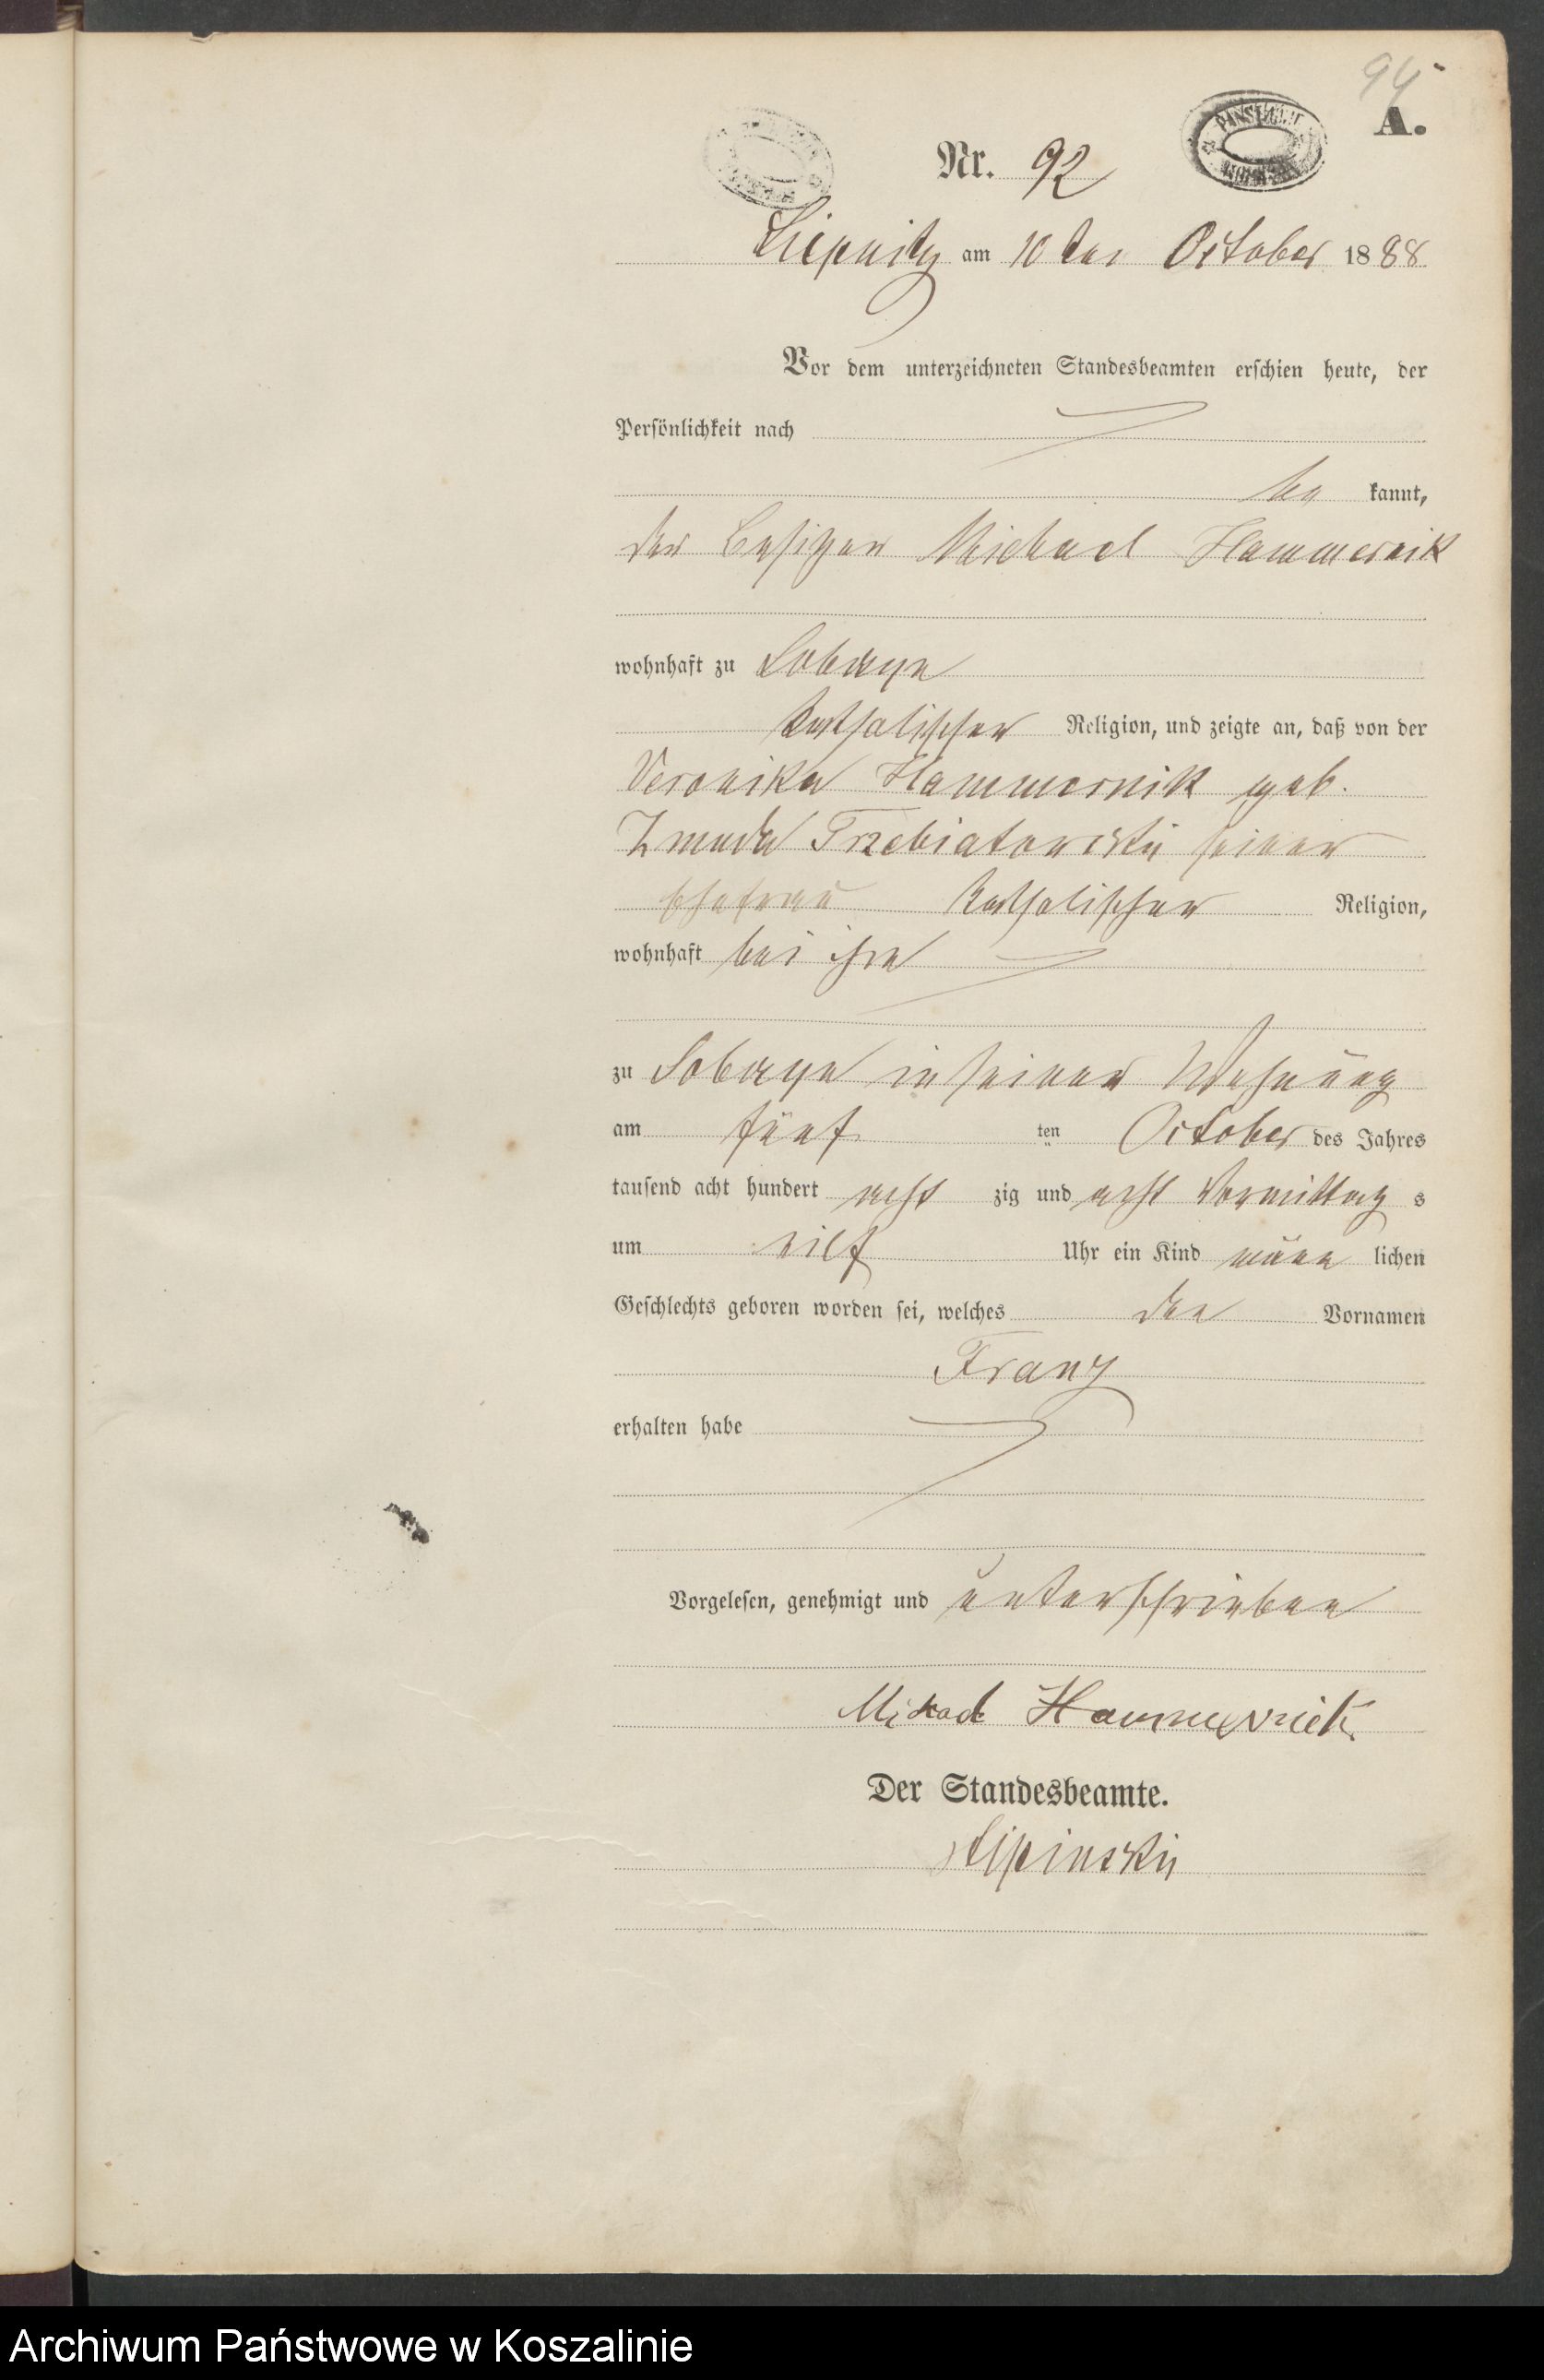 94
A.
Nr. 92
Liepnitz am 10ten October 1888
Vor dem unterzeichneten Standesbeamten erschien heute, der
Persönlichkeit nach
be kannt,
der Besitzer Michael Hammernik
wohnhaft zu
katholischer Religion, und zeigte an, daß von der
Veronika Hammernik geb.
Zmuda Trzebiatowski seiner
Ehefrau katholischer Religion,
wohnhaft bei ihm
zu in seiner Wohnung
am fünf ten October des Jahres
tausend acht hundert acht zig und acht Vormittag s
um eilf Uhr ein Kind männ lichen
Geschlechts geboren worden sei, welches den Vornamen
Franz
erhalten habe
Vorgelesen, genehmigt und unterschrieben
Hammernick
Der Standesbeamte.
Lipinski
Archiwum Państwowe w Koszalinie